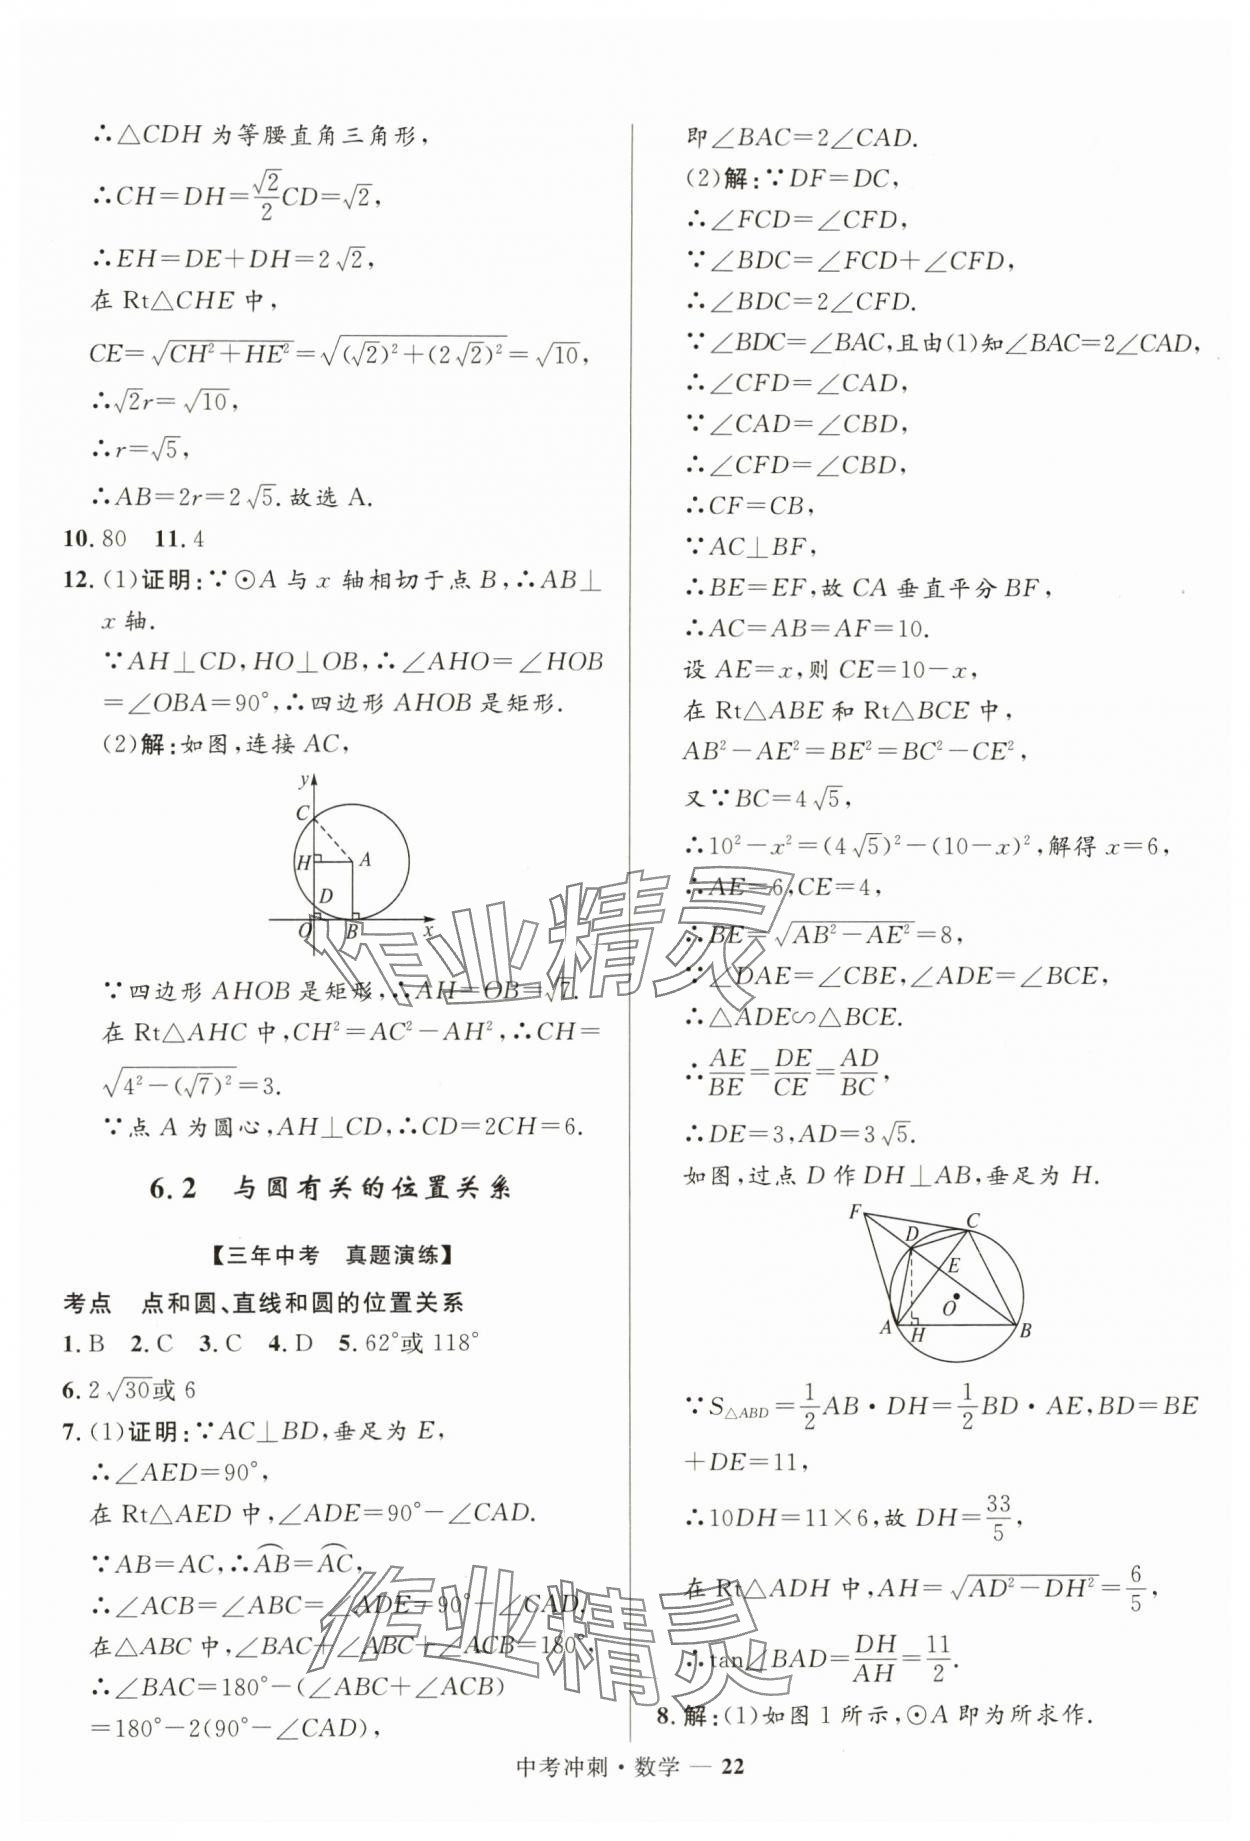 ∴△CDH 为等腰直角三角形，
∴CH=DH=√2/2 CD=√2，
∴EH=DE+DH=2√2，
在 Rt△CHE 中，
CE=√(CH²+HE²)=√((√2)²+(2√2)²)=√10，
∴√2r=√10，
∴r=√5，
∴AB=2r=2√5.故选 A.
10. 80 11. 4
12. (1)证明：∵⊙A 与 x 轴相切于点 B，∴AB⊥
x 轴.
∵AH⊥CD，HO⊥OB，∴∠AHO=∠HOB
=∠OBA=90°，∴四边形 AHOB 是矩形.
(2)解：如图，连接 AC，
y
C
H
A
D
O
B
x
∵四边形 AHOB 是矩形，∴AH=OB=√7.
在 Rt△AHC 中，CH²=AC²-AH²，∴CH=
√(4²-(√7)²)=3.
∵点 A 为圆心，AH⊥CD，∴CD=2CH=6.
6.2 与圆有关的位置关系
【三年中考 真题演练】
考点 点和圆、直线和圆的位置关系
1. B 2. C 3. C 4. D 5. 62°或 118°
6. 2√30或 6
7. (1)证明：∵AC⊥BD，垂足为 E，
∴∠AED=90°，
在 Rt△AED 中，∠ADE=90°-∠CAD.
∵AB=AC，∴⌒AB=⌒AC，
∴∠ACB=∠ABC=∠ADE=90°-∠CAD.
在△ABC 中，∠BAC+∠ABC+∠ACB=180°，
∴∠BAC=180°-(∠ABC+∠ACB)
=180°-2(90°-∠CAD)，
即∠BAC=2∠CAD.
(2)解：∵DF=DC，
∴∠FCD=∠CFD，
∵∠BDC=∠FCD+∠CFD，
∴∠BDC=2∠CFD.
∵∠BDC=∠BAC，且由(1)知∠BAC=2∠CAD，
∴∠CFD=∠CAD，
∵∠CAD=∠CBD，
∴∠CFD=∠CBD，
∴CF=CB，
∵AC⊥BF，
∴BE=EF，故 CA 垂直平分 BF，
∴AC=AB=AF=10.
设 AE=x，则 CE=10-x，
在 Rt△ABE 和 Rt△BCE 中，
AB²-AE²=BE²=BC²-CE²，
又∵BC=4√5，
∴10²-x²=(4√5)²-(10-x)²，解得 x=6，
∴AE=6，CE=4，
∴BE=√(AB²-AE²)=8，
∵∠DAE=∠CBE，∠ADE=∠BCE，
∴△ADE∽△BCE.
∴AE/BE=DE/CE=AD/BC，
∴DE=3，AD=3√5.
如图，过点 D 作 DH⊥AB，垂足为 H.
F
D
C
E
O
A
H
B
∵S△ABD=1/2 AB·DH=1/2 BD·AE，BD=BE
+DE=11，
∴10DH=11×6，故 DH=33/5，
在 Rt△ADH 中，AH=√(AD²-DH²)=6/5，
∴tan∠BAD=DH/AH=11/2.
8. 解：(1)如图 1 所示，⊙A 即为所求作.
中考冲刺·数学 — 22
作业精灵
作业精灵